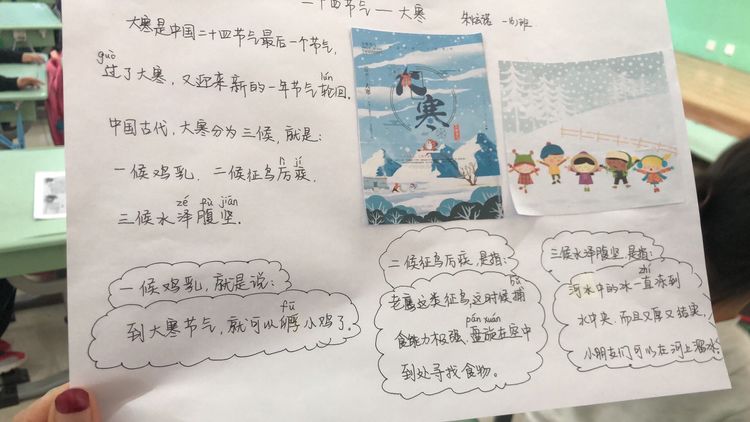 二十四节气——大寒
大寒是中国二十四节气最后一个节气,
guò
过了大寒,又迎来新的一年节气轮回.
lún
中国古代,大寒分为三候,就是:
一候鸡乳,二候征鸟厉疾,
lì jí
三候水泽腹坚.
zé fù jiān
大寒
一候鸡乳,就是说:
fū
到大寒节气,就可以孵小鸡了.
二候征鸟厉疾,是指:
老鹰这类征鸟,这时候捕
bǔ
食能力极强,盘旋在空中
pán xuán
到处寻找食物。
三候水泽腹坚,是指:
zhí
河水中的冰一直冻到
水中央,而且又厚又结实,
小朋友们可以在河上溜冰.